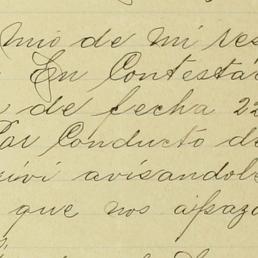 mio de mi res
En Contestac
de fecha 22
Por Conducto de
civi avisandole
que nos aplazo